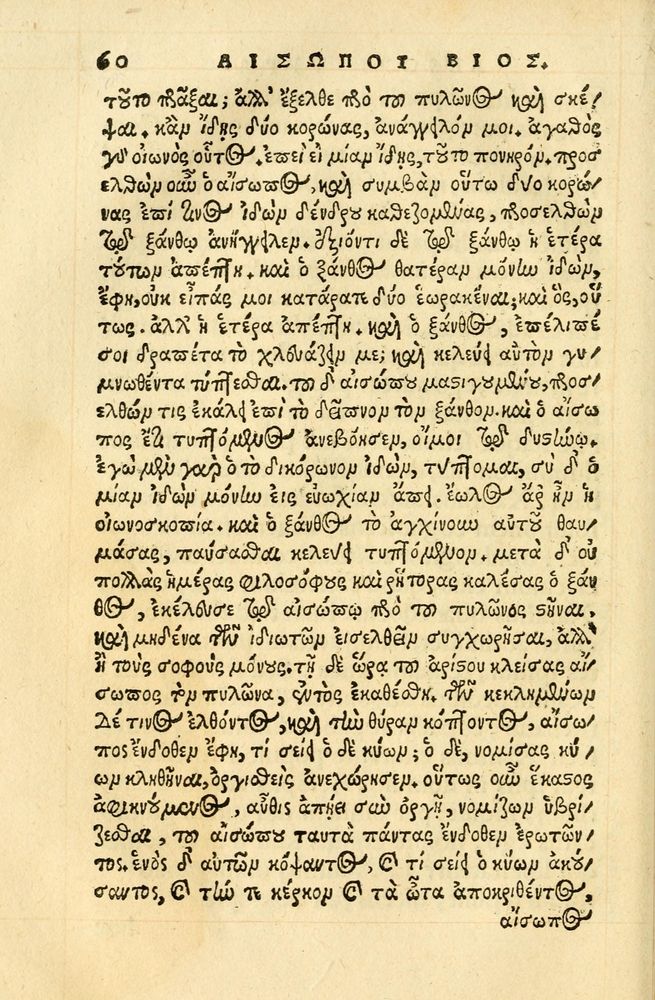 60 ΑΙΣΩΠΟΥ ΒΙΟΣ.
τοῦτο πρᾶξαι; ἀλλ' ἔξελθε πρὸ τοῦ πυλῶνος καὶ σκέ/
ψαι. κἂν ἴδῃς δύο κορώνας, ἀνάγγειλόν μοι. ἀγαθὸς
γὰρ οἰωνὸς οὗτος. ἐπεὶ εἰ μίαν ἴδῃς, τοῦτο πονηρόν. προσ
ελθὼν οὖν ὁ αἴσωπος, καὶ συμβὰν οὕτω δύο κορώ/
νας ἐπί τινος ἰδὼν δένδρου καθεζομένας, προσελθὼν
τῷ ξάνθῳ ἀνήγγειλεν. ἐξιόντι δὲ τῷ ξάνθῳ ἡ ἑτέρα
τούτων ἀπέπτη. καὶ ὁ ξάνθος θατέραν μόνην ἰδών,
ἔφη, οὐκ εἶπάς μοι κατάρατε δύο ἑωρακέναι; καὶ ὅς, οὕ
τως. ἀλλ' ἡ ἑτέρα ἀπέπτη. καὶ ὁ ξάνθος, ἐπέλιπέ
σοι δραπέτα τὸ χλευάζειν με; καὶ κελεύει αὐτὸν γυ/
μνωθέντα τύπτεσθαι. τοῦ δ' αἰσώπου μαστιγουμένου, προσ/
ελθών τις ἐκάλει ἐπὶ τὸ δεῖπνον τὸν ξάνθον. καὶ ὁ αἴσω
πος ἔτι τυπτόμενος ἀνεβόησεν, οἴμοι τῷ δυστήνῳ.
ἐγὼ μὲν γὰρ ὁ τὸ δικόρωνον ἰδών, τύπτομαι, σὺ δ' ὁ
μίαν ἰδὼν μόνην εἰς εὐωχίαν ἄπει. ἕωλος ἄρ' ἦν ἡ
οἰωνοσκοπία. καὶ ὁ ξάνθος τὸ ἀγχίνουν αὐτοῦ θαυ/
μάσας, παύσασθαι κελεύει τυπτόμενον. μετὰ δ' οὐ
πολλὰς ἡμέρας φιλοσόφους καὶ ῥήτορας καλέσας ὁ ξάν
θος, ἐκέλευσε τῷ αἰσώπῳ πρὸ τοῦ πυλῶνος στῆναι,
καὶ μηδένα τῶν ἰδιωτῶν εἰσελθεῖν συγχωρῆσαι, ἀλλ'
ἢ τοὺς σοφοὺς μόνους. τῇ δὲ ὥρᾳ τοῦ ἀρίστου κλείσας αἴ/
σωπος τὸν πυλῶνα, ἐντὸς ἐκαθέσθη. τῶν κεκλημένων
δέ τινος ἐλθόντος, καὶ τὴν θύραν κόπτοντος, αἴσω/
πος ἔνδοθεν ἔφη, τί σείει ὁ δὲ κύων; ὁ δὲ, νομίσας κύ/
ων κληθῆναι, ὀργισθεὶς ἀνεχώρησεν. οὕτως οὖν ἕκαστος
ἀφικνούμενος, αὖθις ἀπῄει σὺν ὀργῇ, νομίζων ὑβρί/
ζεσθαι, τοῦ αἰσώπου ταυτὰ πάντας ἔνδοθεν ἐρωτῶν/
τος. ἑνὸς δ' αὐτῶν κόψαντος, καὶ τί σείει ὁ κύων ἀκού/
σαντος, καὶ τήν τε κέρκον καὶ τὰ ὦτα ἀποκριθέντος,
αἴσωπος